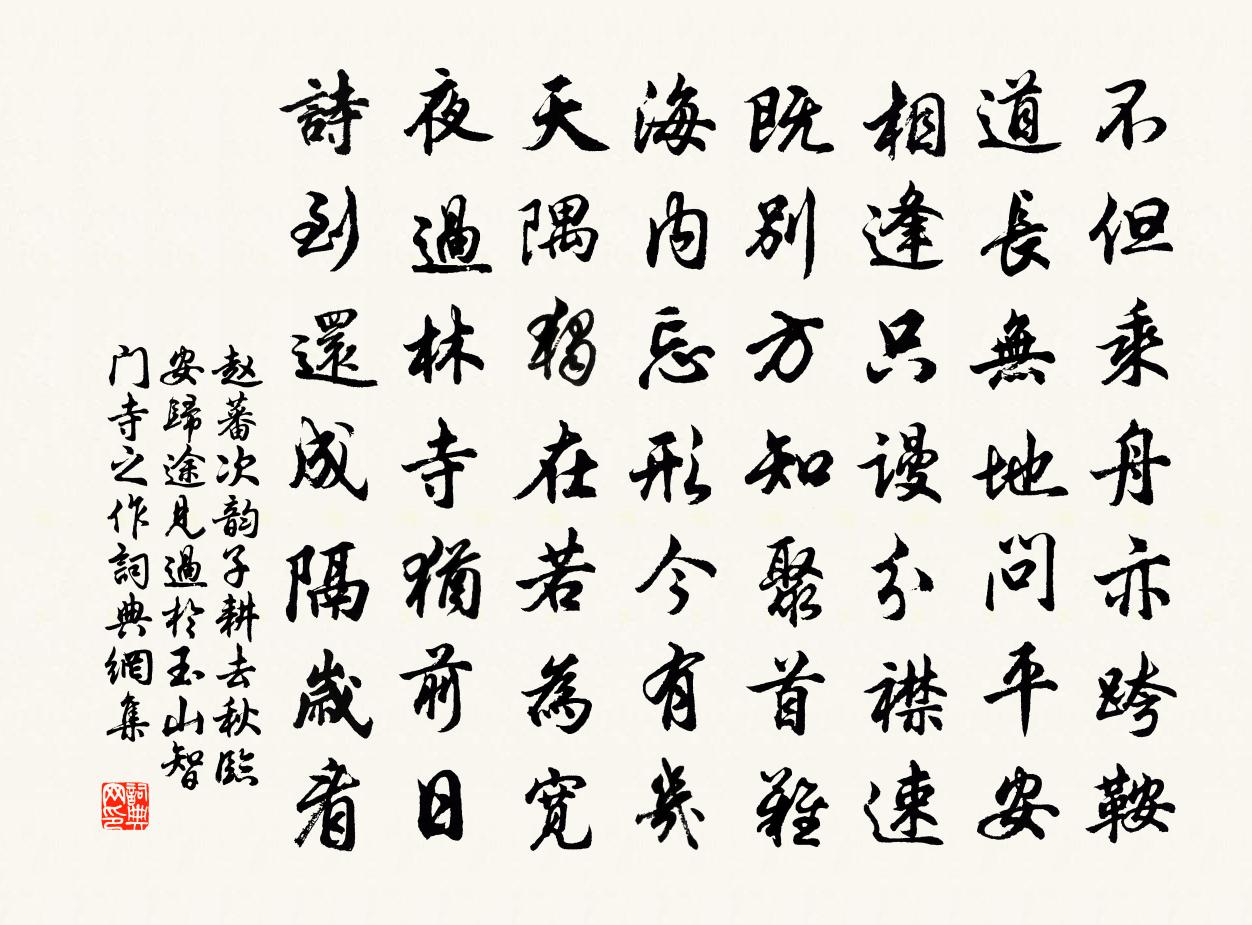 不但乘舟亦跨鞍
道長無地問平安
相逢只謾分襟速
既別方知聚首難
海内忘形今有幾
天隅獨在若為寬
夜過林寺猶前日
詩到還成隔歲看
赵蕃次韵子耕去秋臨
安歸途見過於玉山智
门寺之作詞典網集
詞典
网印